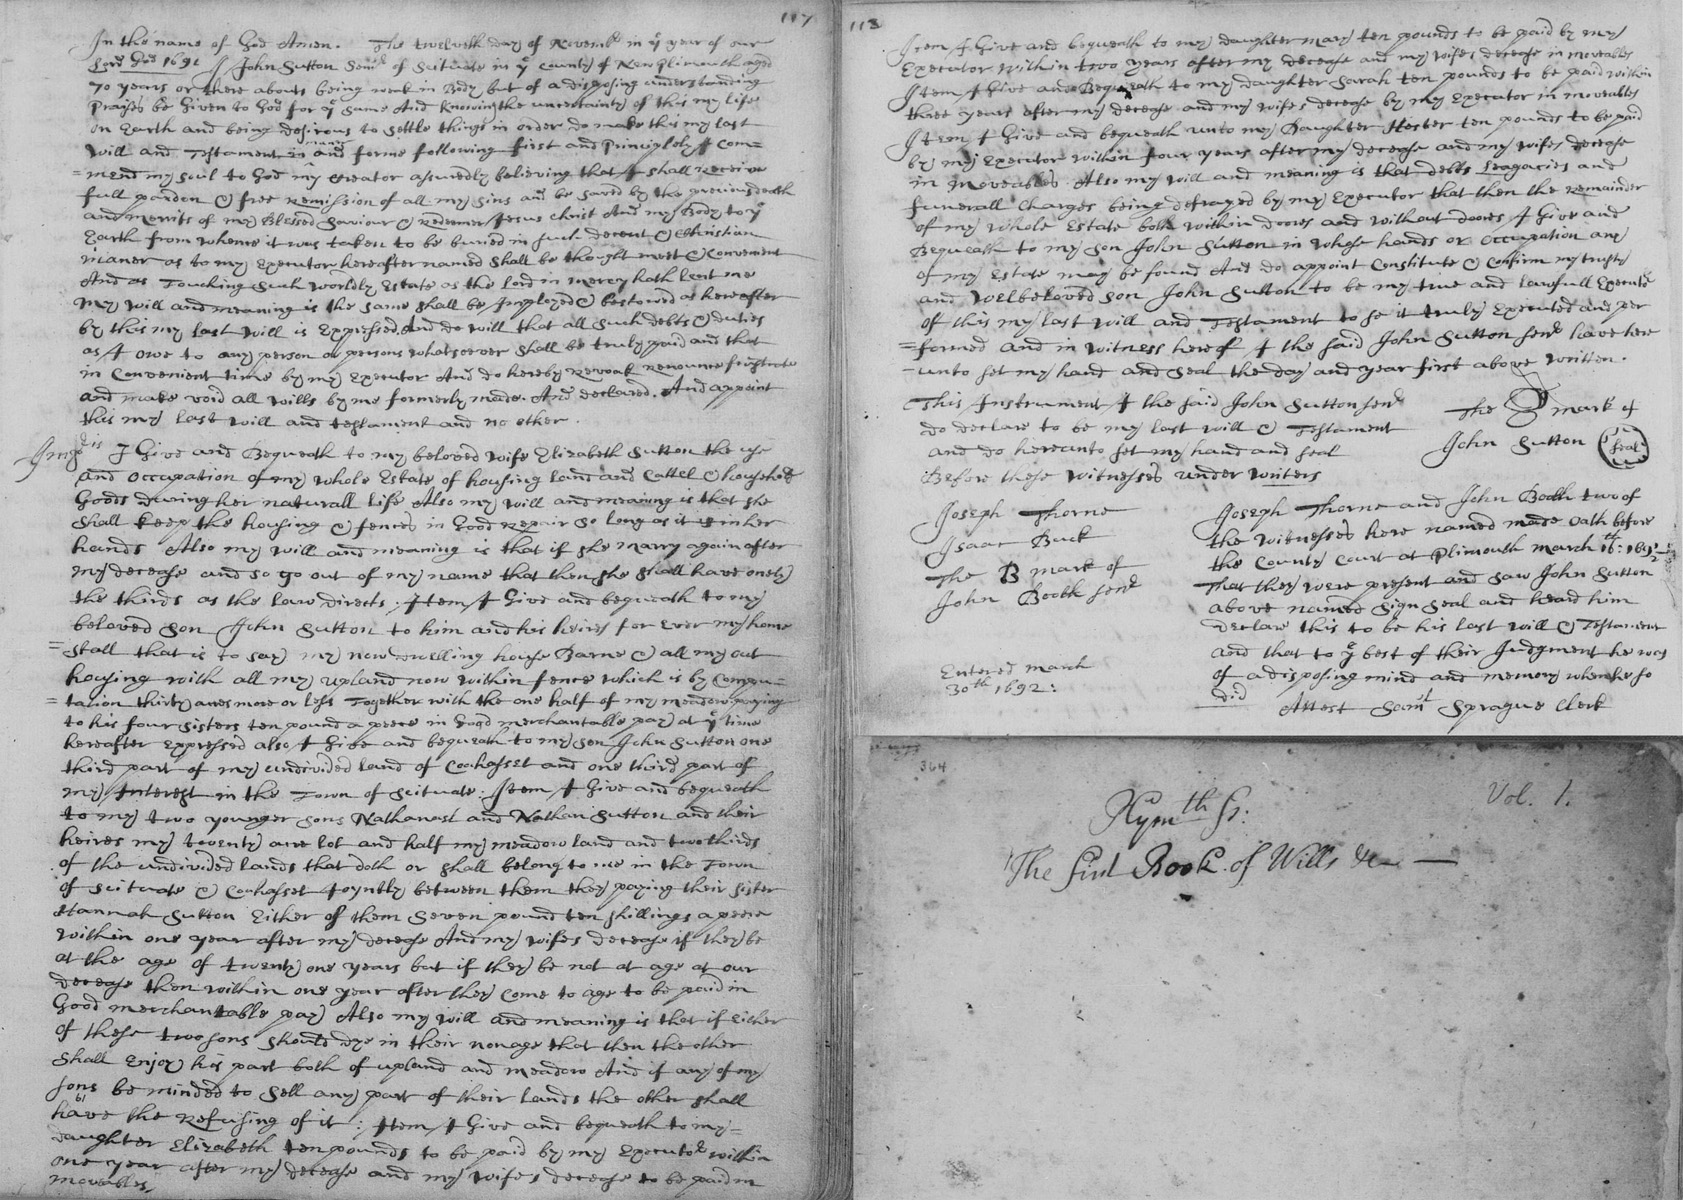 117
In the name of God Amen. The twelveth day of Novembr in ye year of our
Lord God 1691 I John Sutton Senr of Scituate in ye County of New Plimouth aged
70 years or there abouts being weak in Body but of a disposing understanding
Praises be Given to God for ye same And Knowing the uncertainty of this my life
on Earth and being desirous to settle things in order do make this my last
Will and Testament in maner and forme following first and Principlely I Com=
=mend my soul to God my Creator assuredly believing that I shall Receive
full pardon & free Remission of all my sins and be saved by the precious death
and merits of my Blessed Saviour & Redeemer Jesus Christ And my Body to ye
Earth from whence it was taken to be buried in such decent & Christian
maner as to my Executor hereafter named shall be thought meet & Convenient
And as Touching such worldly Estate as the lord in mercy hath lent me
My will and meaning is the same shall be Imployed & bestowed as hereafter
by this my last will is Expressed, And do will that all such debts & duties
as I owe to any person or persons whatsoever shall be truly paid and that
in Convenient time by my Executor And do hereby Revoak renounce frustrate
and make void all wills by me formerly made. And declared. And appoint
this my last will and testament and no other.
Impris I Give and Bequeath to my beloved wife Elizabeth Sutton the use
and occupation of my whole Estate of housing land and Cattel & household
Goods during her naturall life Also my will and meaning is that she
shall keep the housing & fences in Good Repair so long as it is in her
hands Also my will and meaning is that if she marry again after
my decease and so go out of my name that then she shall have onely
the thirds as the law directs. Item I Give and bequeath to my
beloved son John Sutton to him and his heires for ever my home
=stall that is to say my now dwelling house Barne & all my out
housing with all my upland now within fence which is by Compu=
=tation thirty acres more or less Together with the one half of my meadow paying
to his four sisters ten pound a peece in Good merchantable pay at ye time
hereafter Expressed also I Give and bequeath to my son John Sutton one
third part of my undivided land of Coahasset and one third part of
my Interest in the Town of Scituate: Item I Give and bequeath
to my two younger sons Nathanael and Nathan Sutton and their
heires my twenty acre lot and half my meadow land and two thirds
of the undivided lands that doth or shall belong to me in the Town
of Scituate & Coahasset Joyntly between them they paying their sister
Hannah Sutton Either of them Seven pound ten shillings a peece
within one year after my decease And my wifes decease if they be
at the age of twenty one years but if they be not at age at our
decease then within one year after they Come to age to be paid in
Good merchantable pay Also my will and meaning is that if Either
of these two sons should dye in their nonage that then the other
shall Enjoy his part both of upland and meadow And if any of my
sons be minded to sell any part of their lands the other shall
have the Refusing of it: Item I Give and bequeath to my=
daughter Elizabeth ten pounds to be paid by my Executor within
one year after my decease and my wifes decease to be paid in
moveables,
118
Item I Give and bequeath to my daughter Mary ten pounds to be paid by my
Executor within two years after my decease and my wifes decease in moveables
Item I Give and Bequeath to my daughter Sarah ten pounds to be paid within
three years after my decease and my wifes decease by my Executor in moveables
Item I Give and bequeath unto my Daughter Hester ten pounds to be paid
by my Executor within four years after my decease and my wifes decease
in moveables. Also my will and meaning is that debts Leagacies and
funerall Charges being defrayed by my Executor that then the remainder
of my whole Estate both within doores and without doores I Give and
Bequeath to my son John Sutton in whose hands or occupation any
of my Estate may be found And do appoint Constitute & Confirm my trusty
and welbeloved son John Sutton to be my true and lawfull Executr
of this my last will and Testament to se it truly Executed and per
=formed and in witness hereof I the said John Sutton senr have here
=unto set my hand and seal the day and year first above written.
This Instrument I the said John Sutton senr
do declare to be my last will & Testament
and do hereunto set my hand and seal
Before these witnesses under writers
The mark of
John Sutton (seal)
Joseph Thorne
Isaac Buck
The B mark of
John Booth senr
Joseph Thorne and John Booth two of
the witnesses here named made oath before
the County Court at Plimouth March 16th: 1691/2
That they were present and saw John Sutton
above named sign seal and heard him
declare this to be his last will & Testament
and that to ye best of their Judgment he was
of a disposing mind and memory when he so
did
Attest Saml Sprague Clerk
Entered march
30th 1692:
364
Vol. 1.
Plymth Ss:
The first Book of Wills &c